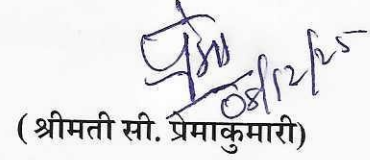 प्रेमा
08/12/25
( श्रीमती सी. प्रेमाकुमारी)